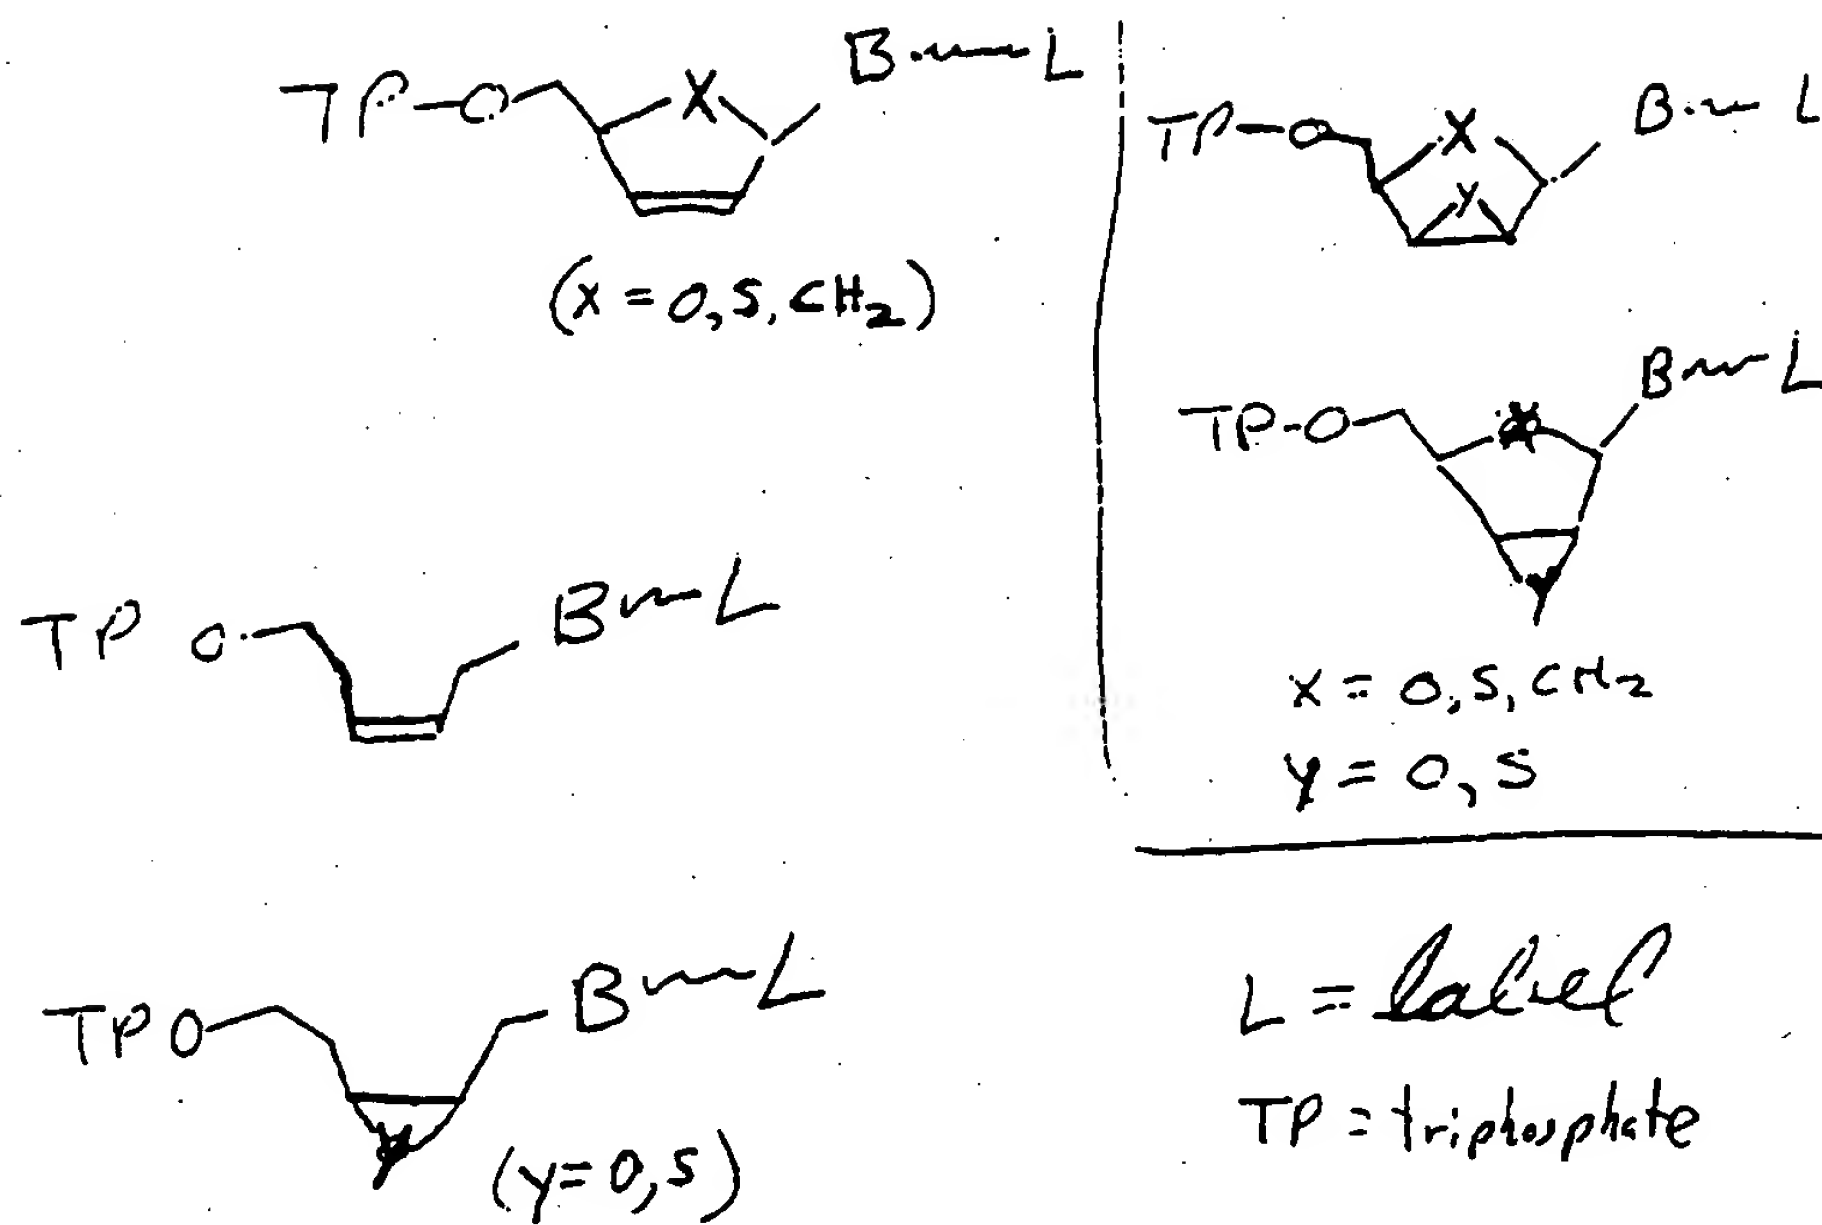 TP-O X B-L
(X = O, S, CH2)
TP O B-L
TP O B-L
Y
(y = O, S)
TP-O X B-L
Y
TP-O X B-L
Y
X = O, S, CH2
Y = O, S
L = label
TP = triphosphate